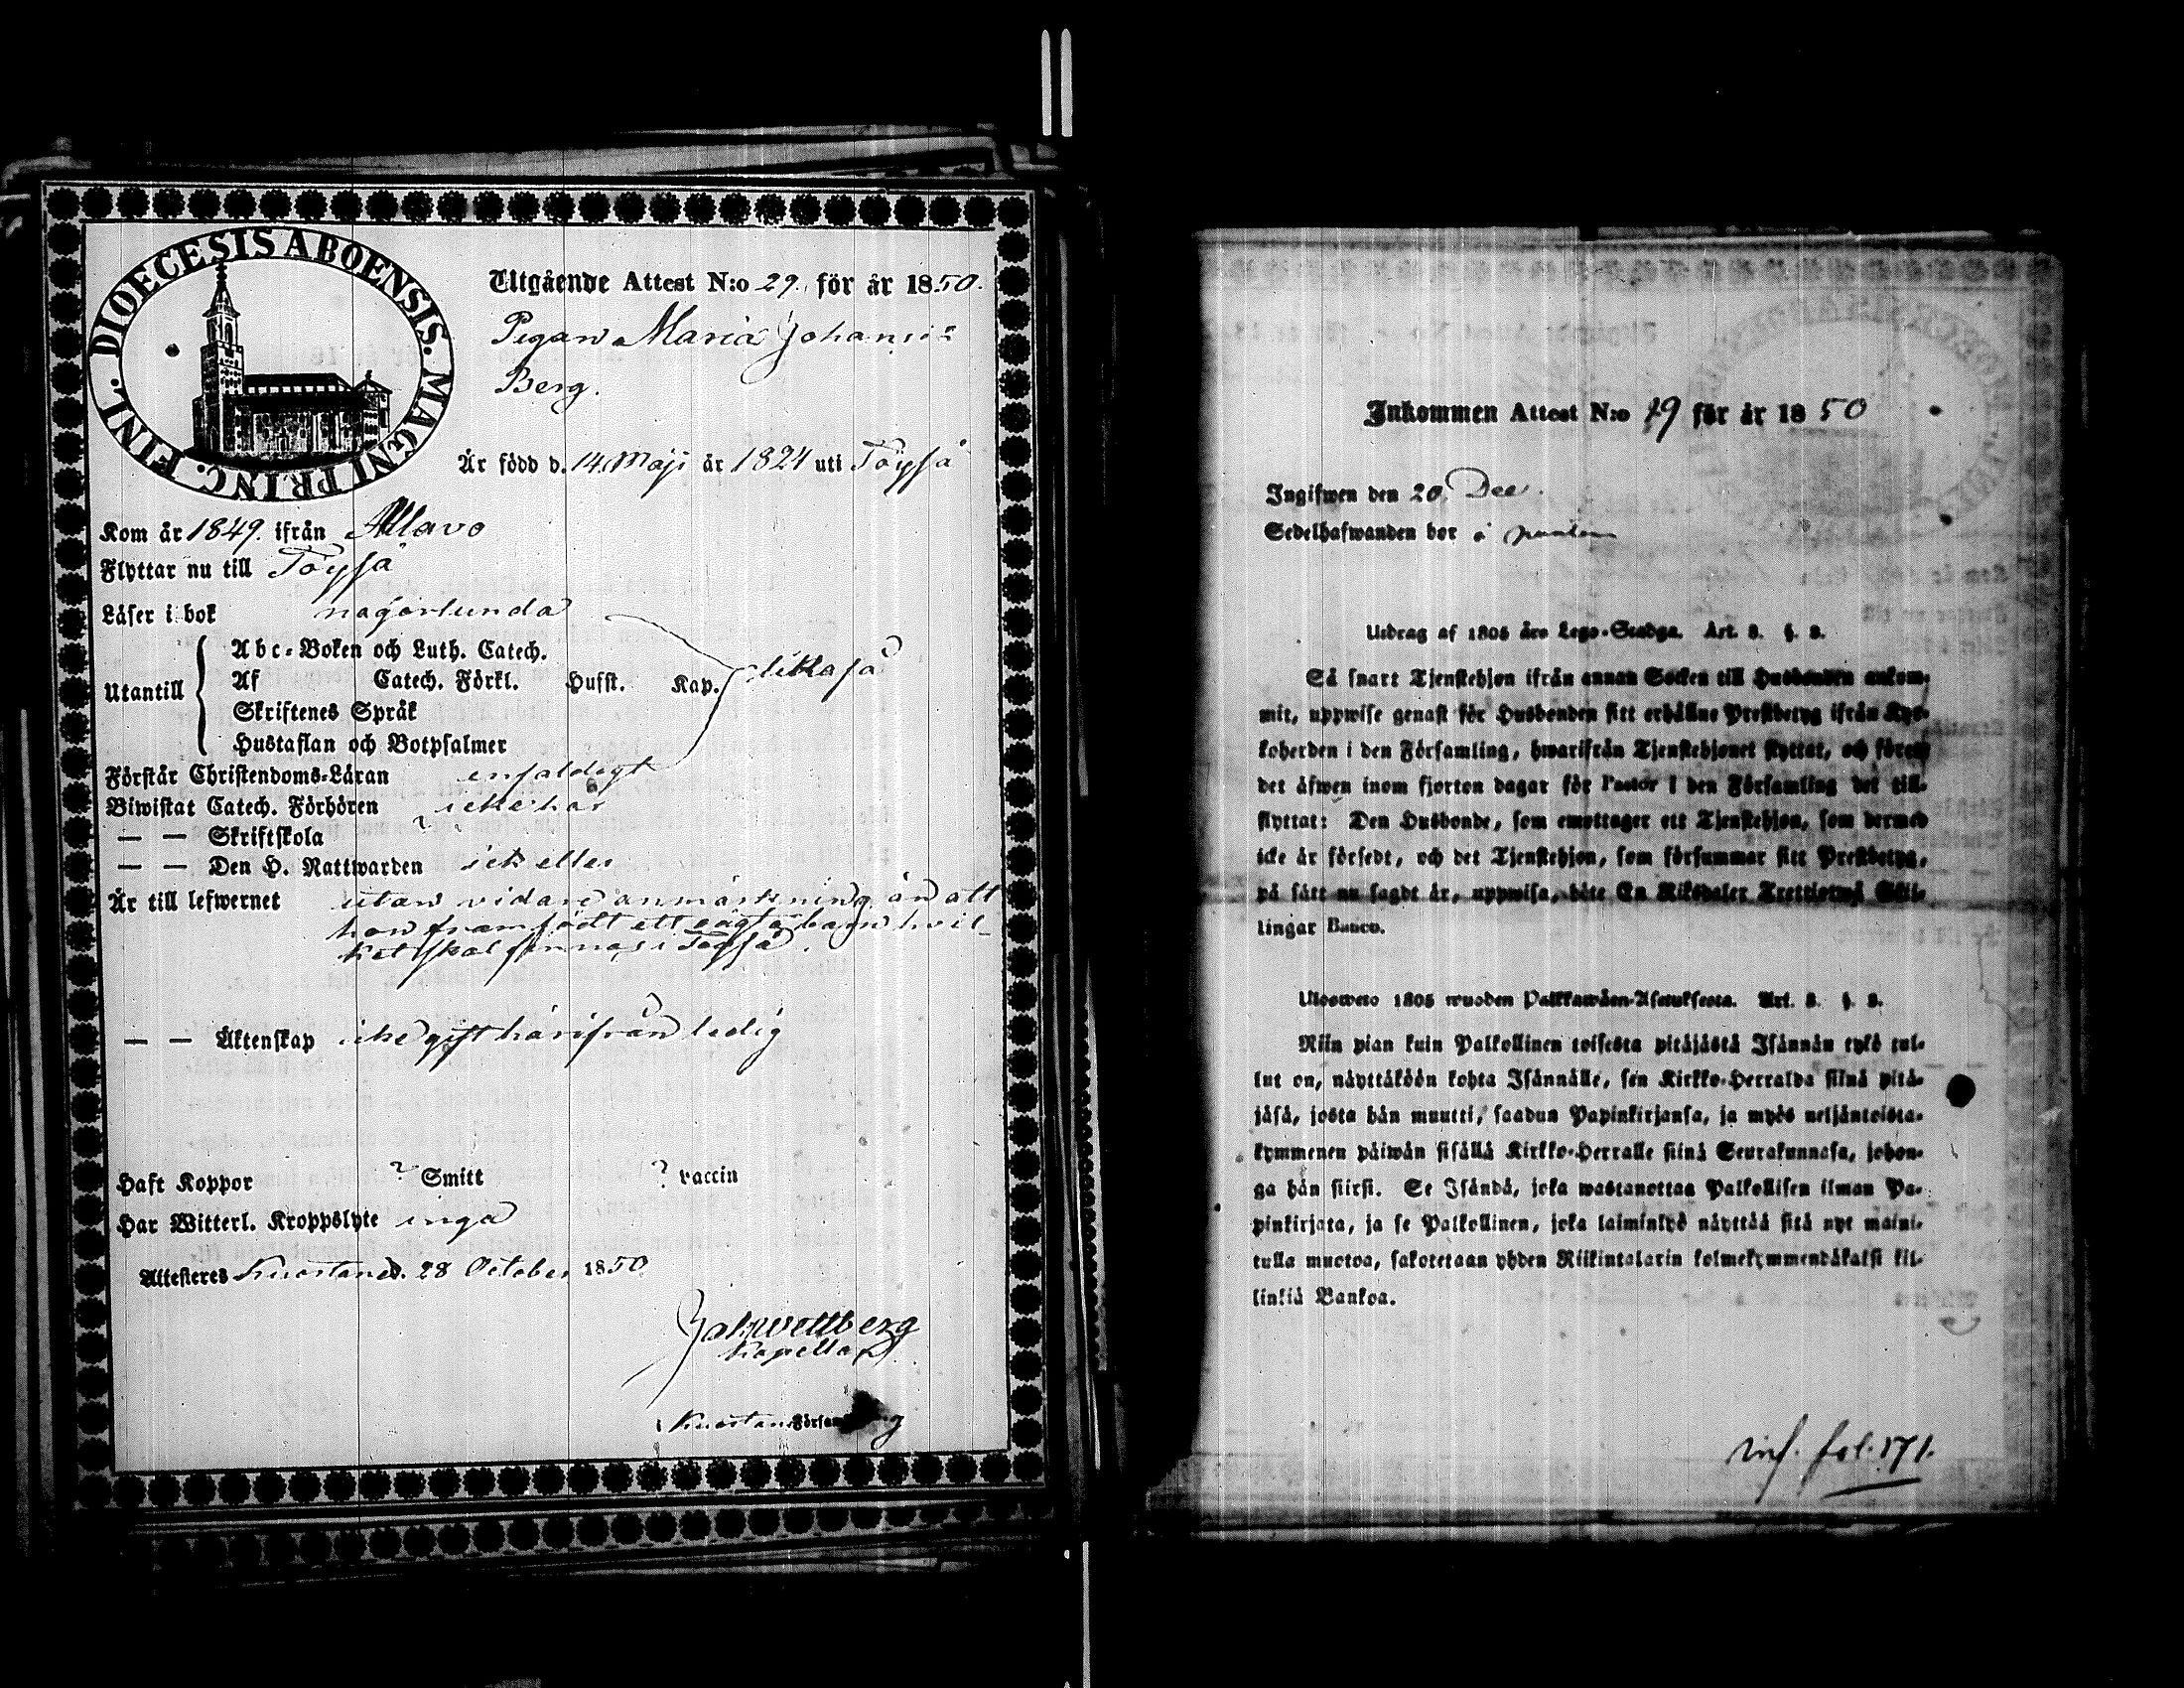 DIOECESIS ABOENSIS. MAGNI PRINC. FINL.
Utgående Attest N:o 29. för år 1850.
Pigan Maria Johansd
Berg.
Är född d. 14. Maji år 1824 uti Töysä
Kom år 1849. ifrån Allavo
Flyttar nu till Töysä
Läser i bok någorlunda
Utantill
Abc-Boken och Luth. Catech.
Af Catech. Förkl. Husst. Kap. lika så
Skriftenes Språk
Hustaflan och Botpsalmer
Förstår Christendoms-Läran enfaldigt
Biwistat Catech. Förhören icke här
— — Skriftskola ?
— — Den H. Nattwarden ick eller
Är till lefwernet utan vidare anmärkning, än att
hon framfödt ett oägta barn hvil-
ket skal finnas i Töysä.
— — Äktenskap icke gift härifrån ledig
Haft Koppor ? Smitt ? vaccin
Har Witterl. Kroppslyte inga
Attesteres Kuortane d. 28 October 1850
Kapellan
Kuortane
Inkommen Attest N:o 19 för år 1850
Ingifwen den 20. Dec.
Sedelhafwanden bor i
Utdrag af 1805 års Lego-Stadga. Art. 8. §. 8.
Så snart Tjenstehjon ifrån annan Socken till Husbonden ankom-
mit, uppwise genast för Husbonden sitt erhållne Prestbetyg ifrån Kyr-
koherden i den Församling, hwarifrån Tjenstehjonet flyttat, och förete
det äfwen inom fjorton dagar för Pastor i den Församling det till-
flyttat: Den Husbonde, som emottager ett Tjenstehjon, som dermed
icke är försedt, och det Tjenstehjon, som försummar sitt Prestbetyg,
på sätt nu sagdt är, uppwisa, böte En Riksdaler Trettiotwå Skil-
lingar Banco.
Ulosweto 1805 wuoden Palkkawäen-Asetuksesta. Art. 8. §. 8.
Niin pian kuin Palkollinen toisesta pitäjästä Isännän tykö tul-
lut on, näyttäköön kohta Isännälle, sen Kirkko-Herralda siinä pitä-
jäsä, josta hän muutti, saadun Papinkirjansa, ja myös neljäntoista-
kymmenen päiwän sisällä Kirkko-Herralle siinä Seurakunnasa, johon-
ga hän siirsi. Se Isändä, joka wastanottaa Palkollisen ilman Pa-
pinkirjata, ja se Palkollinen, joka laiminlyö näyttää sitä nyt maini-
tulla muotoa, sakotetaan yhden Riikintalarin kolmekymmendäkaksi kil-
linkiä Bankoa.
inf. fol. 171.